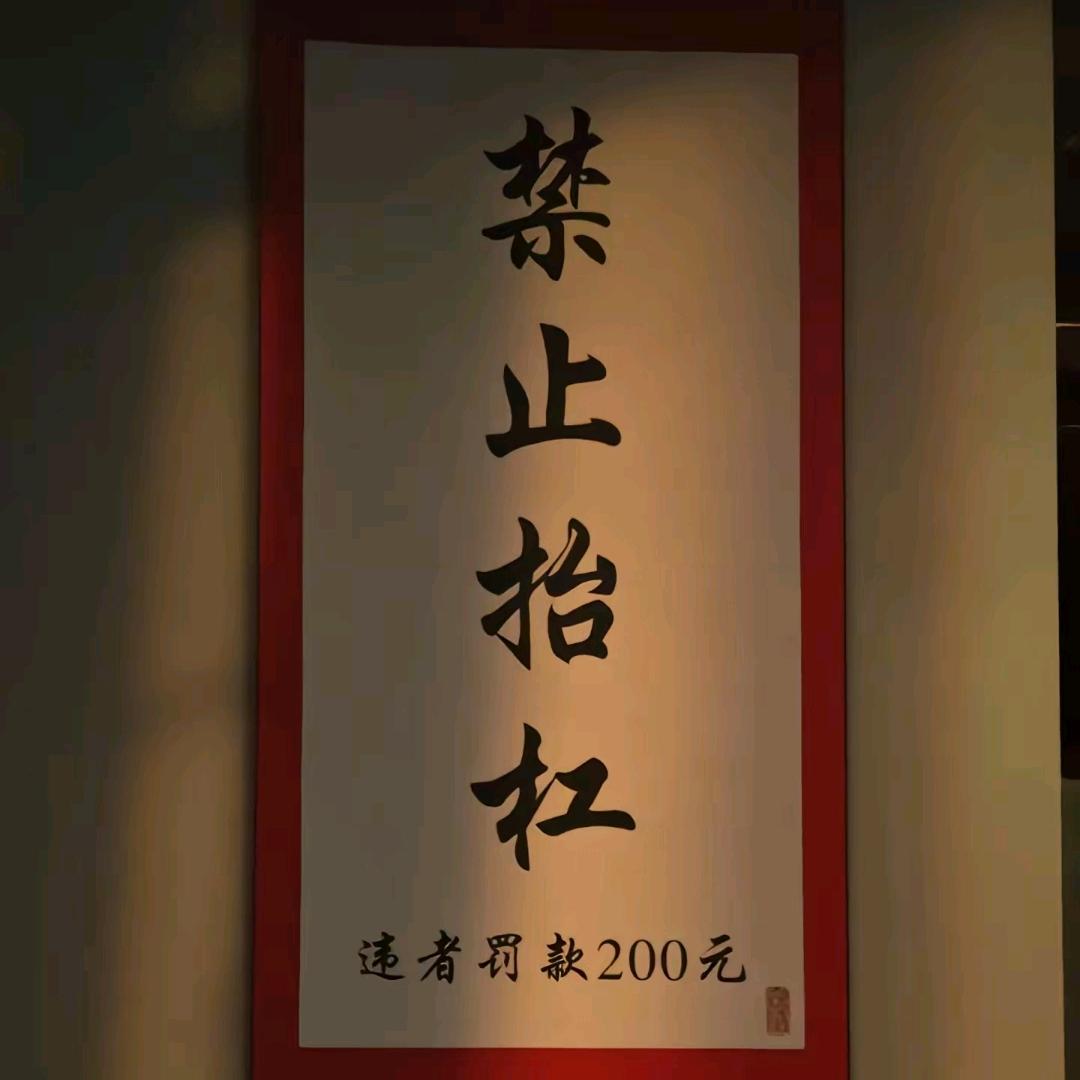 禁止抬杠
违者罚款200元